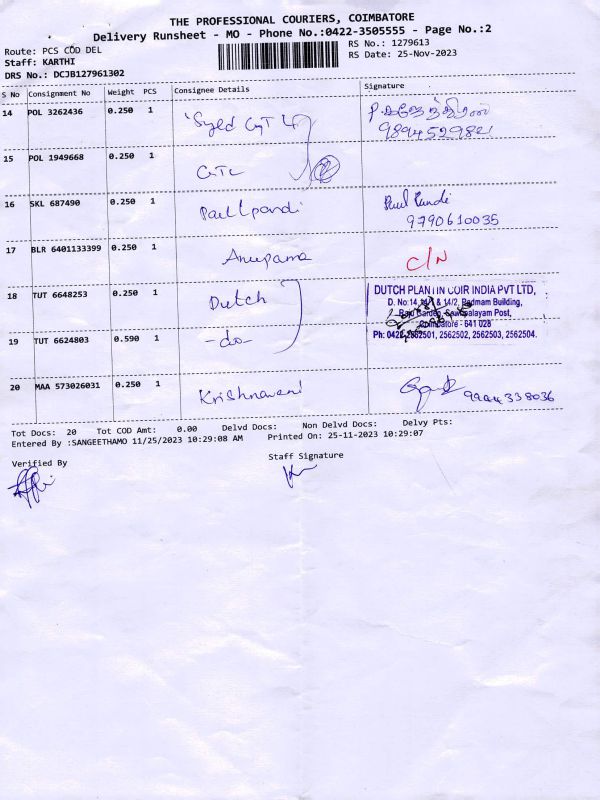 THE PROFESSIONAL COURIERS, COIMBATORE
Delivery Runsheet - MO - Phone No.:0422-3505555 - Page No.:2
Route: PCS COD DEL
RS No.: 1279613
Staff: KARTHI
RS Date: 25-Nov-2023
DRS No.: DCJB127961302
S No Consignment No Weight PCS Consignee Details Signature
14 POL 3262436 0.250 1 Syed
9894529821
15 POL 1949668 0.250 1
16 SKL 687490 0.250 1 Paul pandi Paul Pandi
9790610035
17 BLR 6401133399 0.250 1 Anupama C/N
18 TUT 6648253 0.250 1 Dutch
DUTCH PLANTIN COIR INDIA PVT LTD,
D. No:14, & 14/2, Padmam Building,
Garden, Sowripalayam Post,
Coimbatore - 641 028
Ph: 0422-2562501, 2562502, 2562503, 2562504.
19 TUT 6624803 0.590 1 -do-
20 MAA 573026031 0.250 1 Krishnaveni 9944338036
Tot Docs: 20 Tot COD Amt: 0.00 Delvd Docs: Non Delvd Docs: Delvy Pts:
Entered By :SANGEETHAMO 11/25/2023 10:29:08 AM Printed On: 25-11-2023 10:29:07
Verified By Staff Signature